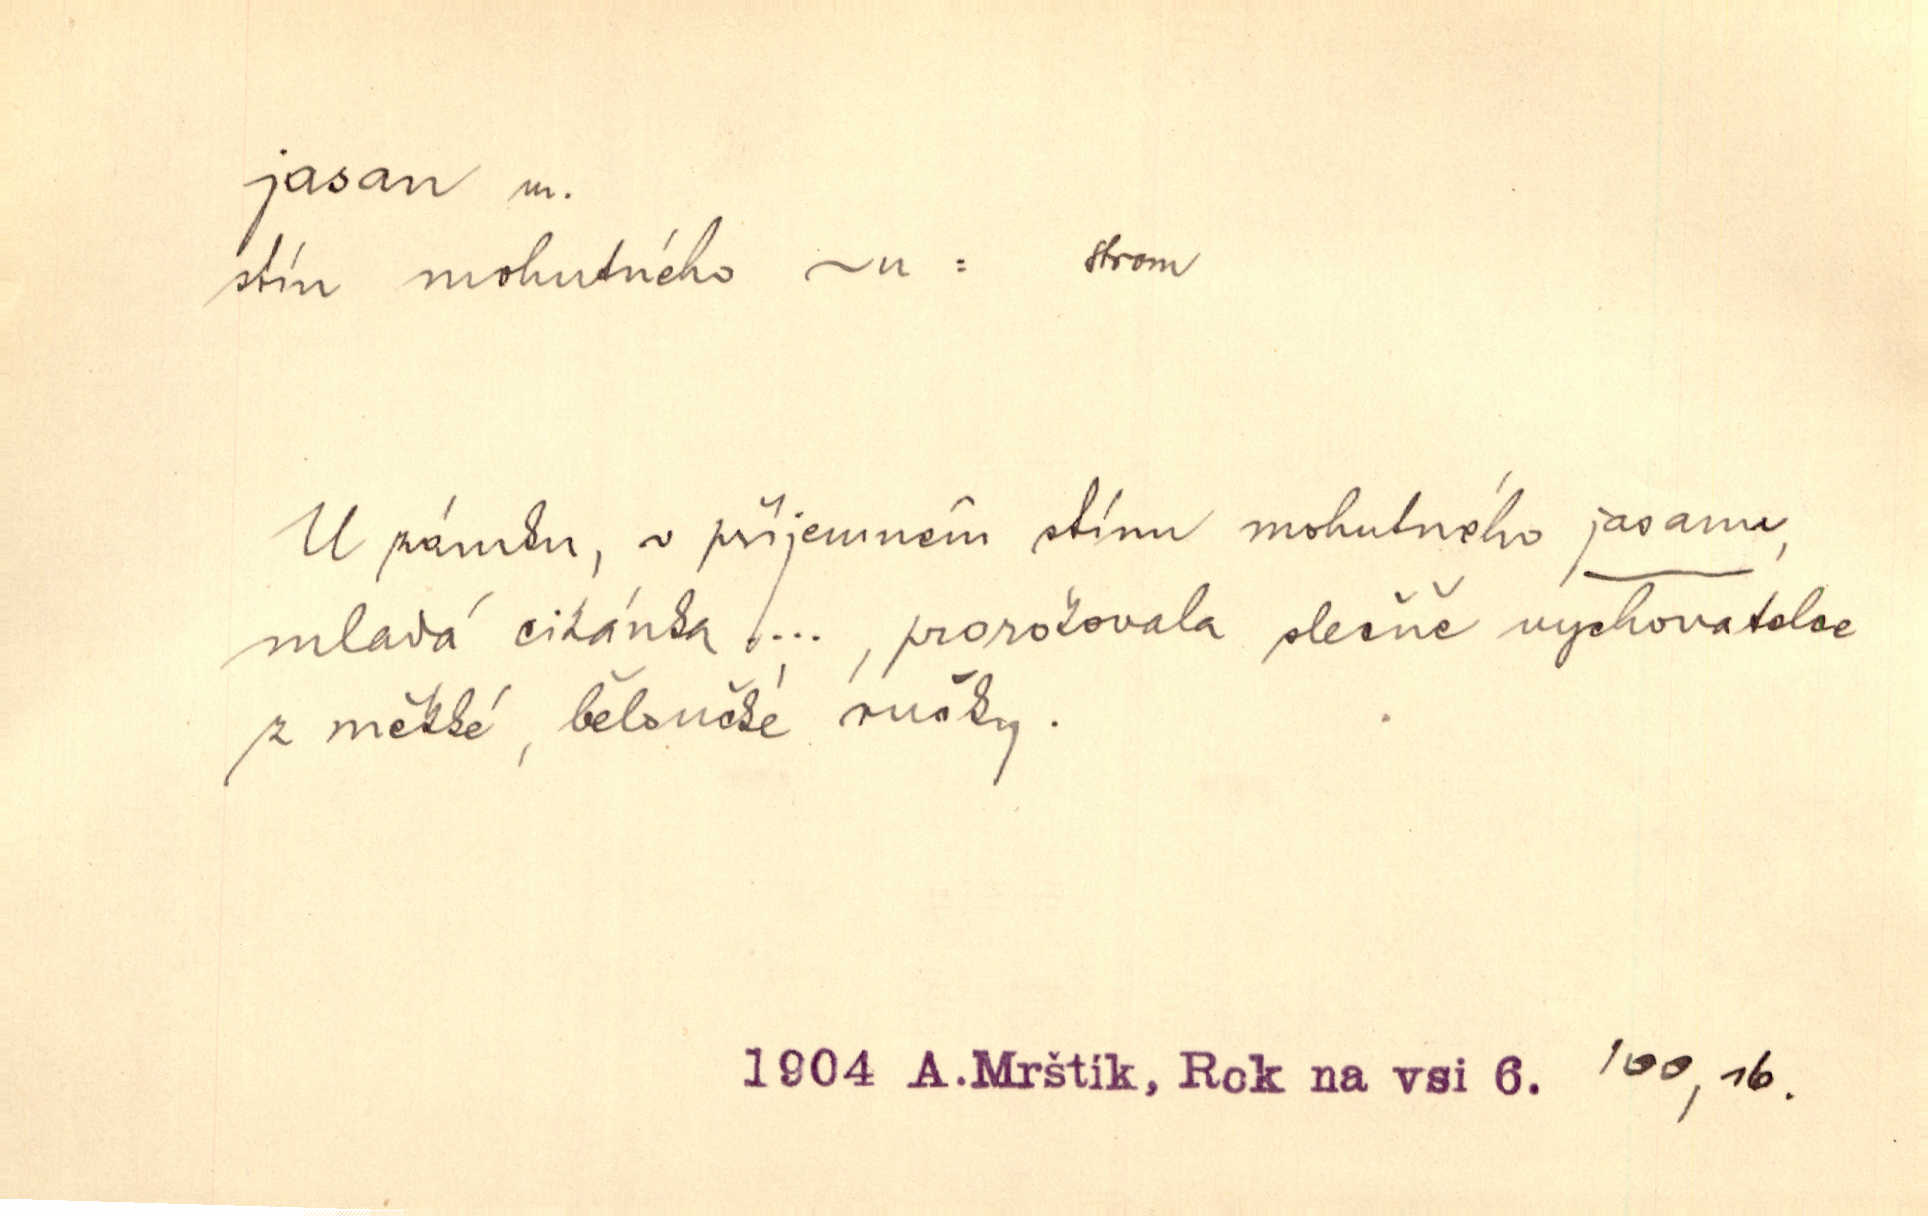 jasan m.
stín mohutného ~u = strom
U zámku, v příjemném stínu mohutného jasanu,
mladá cikánka ..., prorokovala slečně vychovatelce
z měkké, běloučké ručky.
1904 A.Mrštík, Rok na vsi 6. 100, 16.